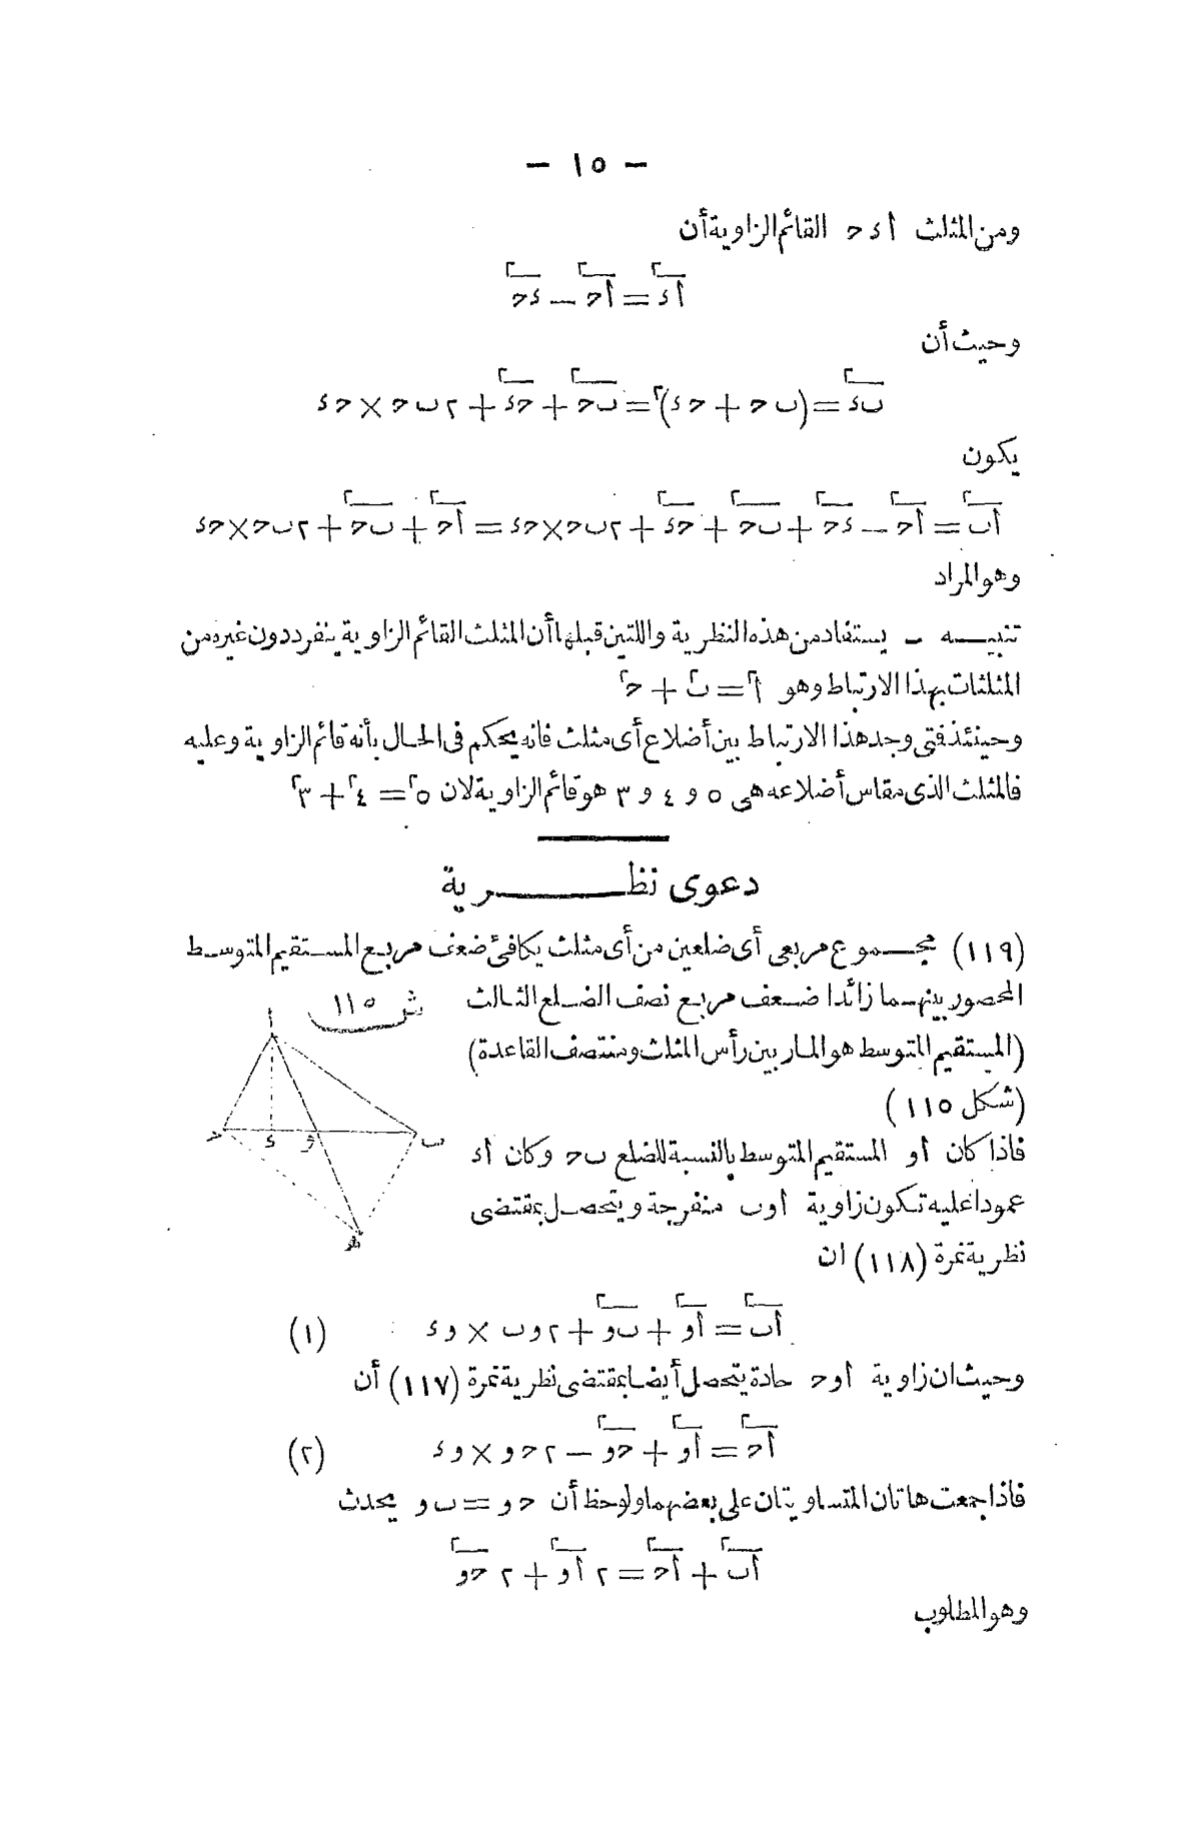 — ١٥ —
ومن المثلث أ د ح القائم الزاوية أن
أد٢ = أح٢ — دح٢
وحيث أن
ب‍د٢ = (ب ح + ح د)٢ = ب‍ح٢ + حد٢ + ٢ ب ح × ح د
يكون
أب٢ = أح٢ — دح٢ + ب‍ح٢ + حد٢ + ٢ ب ح × ح د = أح٢ + ب‍ح٢ + ٢ ب ح × ح د
وهو المراد
تنبيه — يستفاد من هذه النظرية واللتين قبلها أن المثلث القائم الزاوية ينفرد دون غيره من
المثلثات بهذا الارتباط وهو أ٢ = ب٢ + ح٢
وحينئذ فمتى وجد هذا الارتباط بين أضلاع أى مثلث فانه يحكم فى الحال بأنه قائم الزاوية وعليه
فالمثلث الذى مقاس أضلاعه هى ٥ و ٤ و ٣ هو قائم الزاوية لان ٥٢ = ٤٢ + ٣٢
دعوى نظرية
(١١٩) مجموع مربعى أى ضلعين من أى مثلث يكافئ ضعف مربع المستقيم المتوسط
المحصور بينهما زائدا ضعف مربع نصف الضلع الثالث
(المستقيم المتوسط هو المار بين رأس المثلث ومنتصف القاعدة)
(شكل ١١٥)
ش ١١٥
ا
ح د و ب
ه
فاذا كان أو المستقيم المتوسط بالنسبة للضلع ب ح وكان أد
عمودا عليه تكون زاوية أوب منفرجة ويتحصل بمقتضى
نظرية نمرة (١١٨) ان
أب٢ = أو٢ + ب‍و٢ + ٢ وب × و د (١)
وحيث ان زاوية أوح حادة يتحصل أيضا بمقتضى نظرية نمرة (١١٧) أن
أح٢ = أو٢ + حو٢ — ٢ ح و × و د (٢)
فاذا جمعت هاتان المتساويتان على بعضهما ولوحظ أن ح و = ب و يحدث
أب٢ + أح٢ = ٢ أو٢ + ٢ حو٢
وهو المطلوب